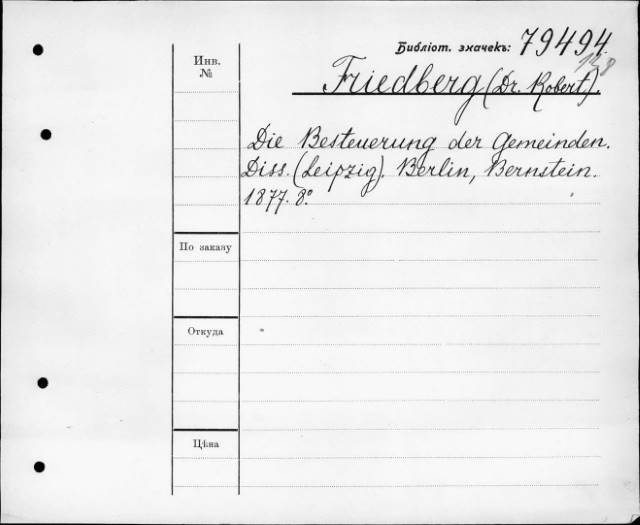 Библіот. значекъ: 79494.
128
Инв.
№
Friedberg (Dr. Robert).
Die Besteuerung der Gemeinden.
Diss. (Leipzig). Berlin, Bernstein.
1877. 8°.
По заказу
Откуда
Цѣна